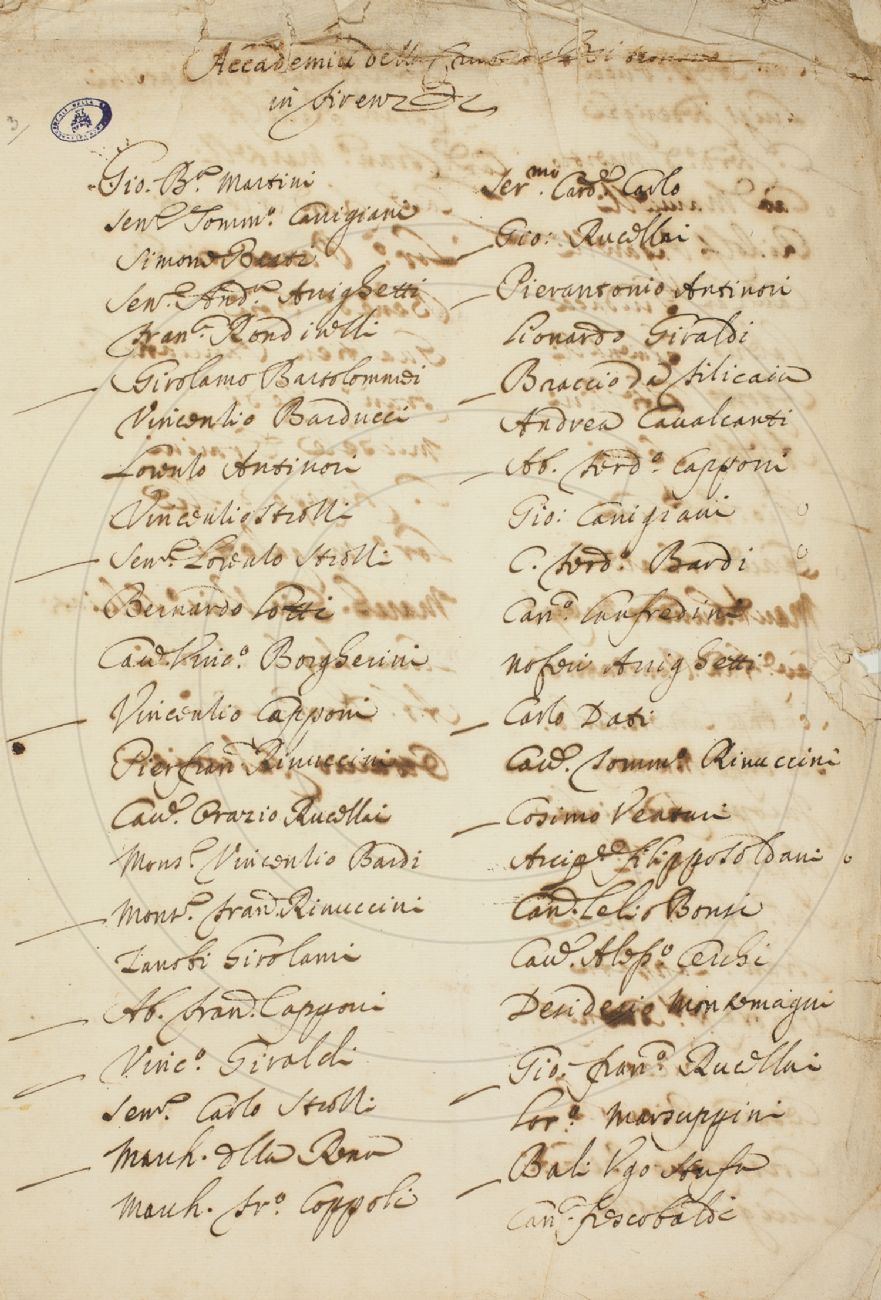 Accademici della
in Firenze
3
Gio: Ba. Martini
Senre. Tommo. Canigiani
Simone Berti
Senre. Anda. Arrighetti
Franco. Rondinelli
Girolamo Bartolommei
Vincentio Barducci
Lorenzo Antinori
Vincentio Strozzi
Senre. Lorenzo Strozzi
Bernardo
Caure. Vinco. Borgherini
Vincentio Capponi
Pierfranco Rinuccini
Caure. Orazio Rucellai
Monsre. Vincentio Bardi
Monsre. Franco. Rinuccini
Zanobi Girolami
Ab. Franco. Capponi
Vinco. Giraldi
Senre. Carlo Strozzi
March. della Rena
March. Fro. Coppoli
Sermo. Carde. Carlo
Gio: Rucellai
Pierantonio Antinori
Lionardo Giraldi
Braccio da Filicaia
Andrea Caualcanti
Ab. Ferdo. Capponi
Gio: Canigiani
C. Ferdo. Bardi
Cano. Lanfredini
Nofri Arrighetti
Carlo Dati
Caue. Tommo. Rinuccini
Cosimo Venturi
Filippo Soldani
Lelio Bonsi
Caue. Alesso. Cerchi
Desiderio Montemagni
Gio: Franco. Rucellai
Loro. Marsuppini
Bali Ugo Stufa
Cano. Frescobaldi